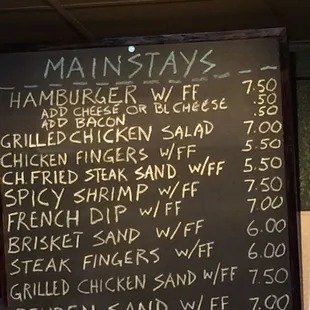 MAINSTAYS
HAMBURGER W/ FF 7.50
ADD CHEESE OR BL CHEESE .50
ADD BACON .50
GRILLED CHICKEN SALAD 7.00
CHICKEN FINGERS W/FF 5.50
CH. FRIED STEAK SAND W/FF 5.50
SPICY SHRIMP W/FF 7.50
FRENCH DIP W/FF 7.00
BRISKET SAND W/FF 6.00
STEAK FINGERS W/FF 6.00
GRILLED CHICKEN SAND W/FF 7.50
REUBEN SAND W/FF 7.00